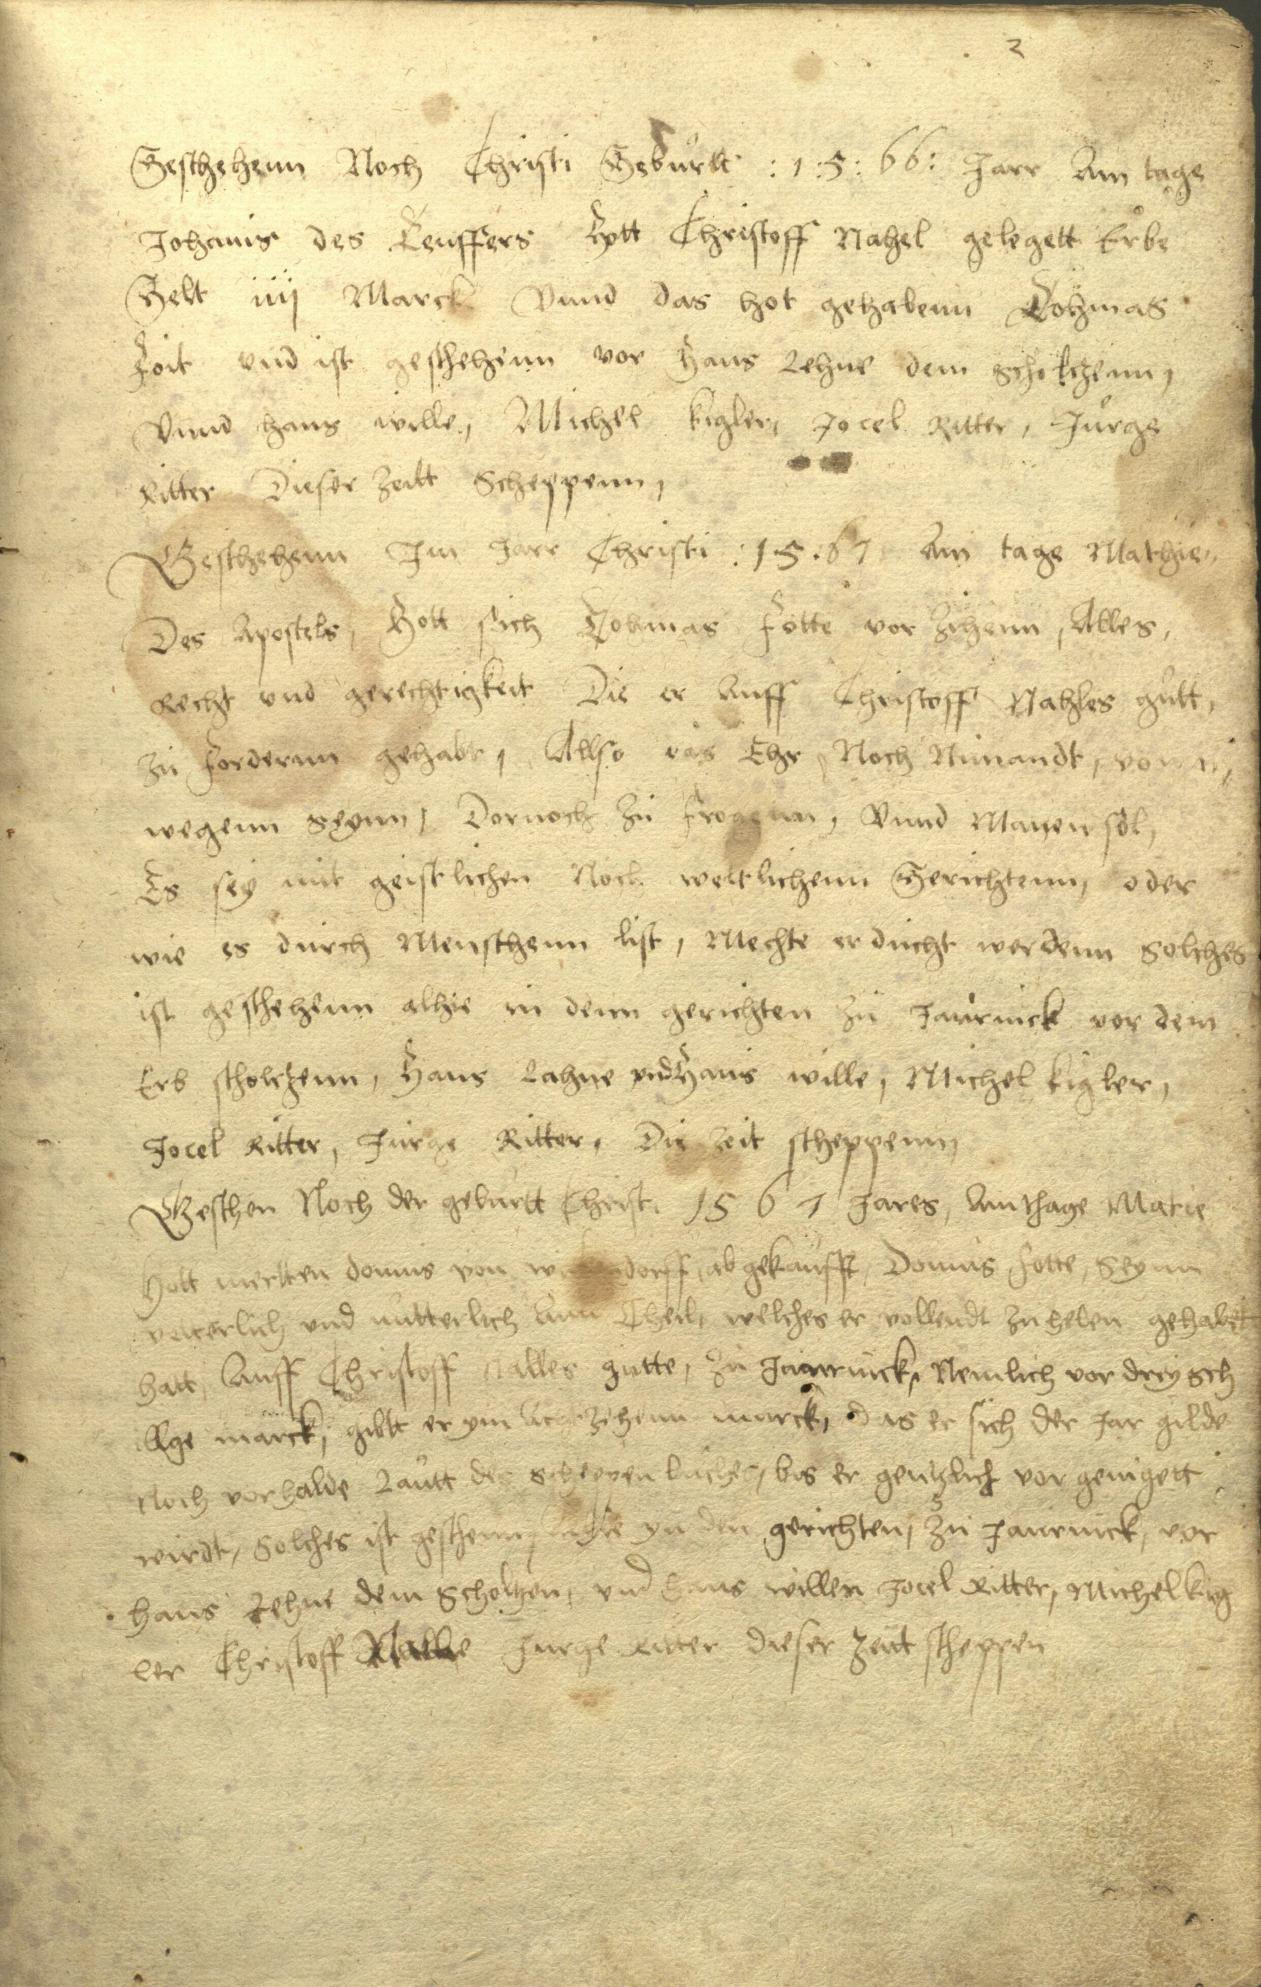 2
Geschehenn Noch Christi Geburtt : 1 5 : 66 : Jarr Am tage
Johanis des Teuffers Hott Christoff Nahel gelegett Erbe
Gelt iiij Marck Vnnd das hot gehabenn Tohmas
Foit vnd ist geschehenn vor Hans Lehne dem Scholtzenn,
Vnnd hans wille, Michel kigler, Jocel Ritter, Jurge
Ritter Dieser Zeitt Scheppenn,
Geschehenn Im Jarr Christi : 15 . 67 Am tage Mathie
Des Apostels, Hott sich Tohmas Fotte vor Zihenn, Alles,
Recht vnd gerechtigkeit Die er Auff Christoff Nahles gutt,
zu Fordernn gehabt, Allso das Ehr Noch Nimandt, von
wegenn Seynn, Dornoch zu Frogenn, Vnnd Manen sol,
Es sey mit geistlichen Noch weltlichenn Gerichtenn, oder
wie es durch Menschenn list, Mechte erducht werdenn Solches
ist geschehenn alhie in denn gerichten zu Jaurnick vor dem
Erb scholtzenn, Hans Lahne vnd Hans wille, Michel kigler,
Jocel Ritter, Jurge Ritter, Die Zeit scheppenn,
Geschen Noch der geburtt Christi 15 6 7 Jares, Am thage Marie
Hott merten domis von abgekaufft, Domis Fotte, Seynn
veterlich vnd mutterlich Ann Theil, welches er vollendt zu heben gehabet
hatt, Auff Christoff Nalles gutte, Zu Jaurnick, Nemlich vor drey Sch
marck, gibtt er ym zihenn marck, Das er sich der Jar gilde
Noch vorhalde Lautt des scheppen buches, bis er gentzlich vor genigett
wirdt, Solches ist geschenn yn den gerichten, Zu Jaurnick, vor
hans Lehne dem Scholtzen, vnd hans willen Jocel Ritter, Michel kig
ler Christoff Nalle Jurge Ritter dieser Zeit scheppen